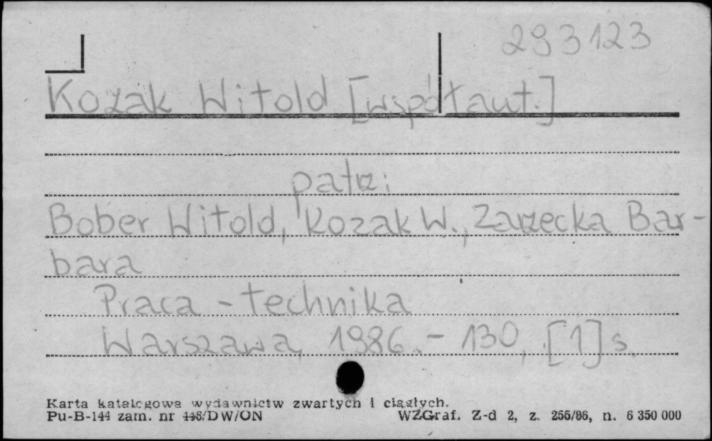 293123
Kozak Witold [współaut.]
patrz:
Bober Witold, Kozak W., Zarzecka Bar-
bara
Praca - technika
Warszawa, 1986. - 130, [1] s.
Karta katalogowa wydawnictw zwartych i ciągłych.
Pu-B-144 zam. nr 446/DW/ON WZGraf. Z-d 2, z. 256/86, n. 6 350 000